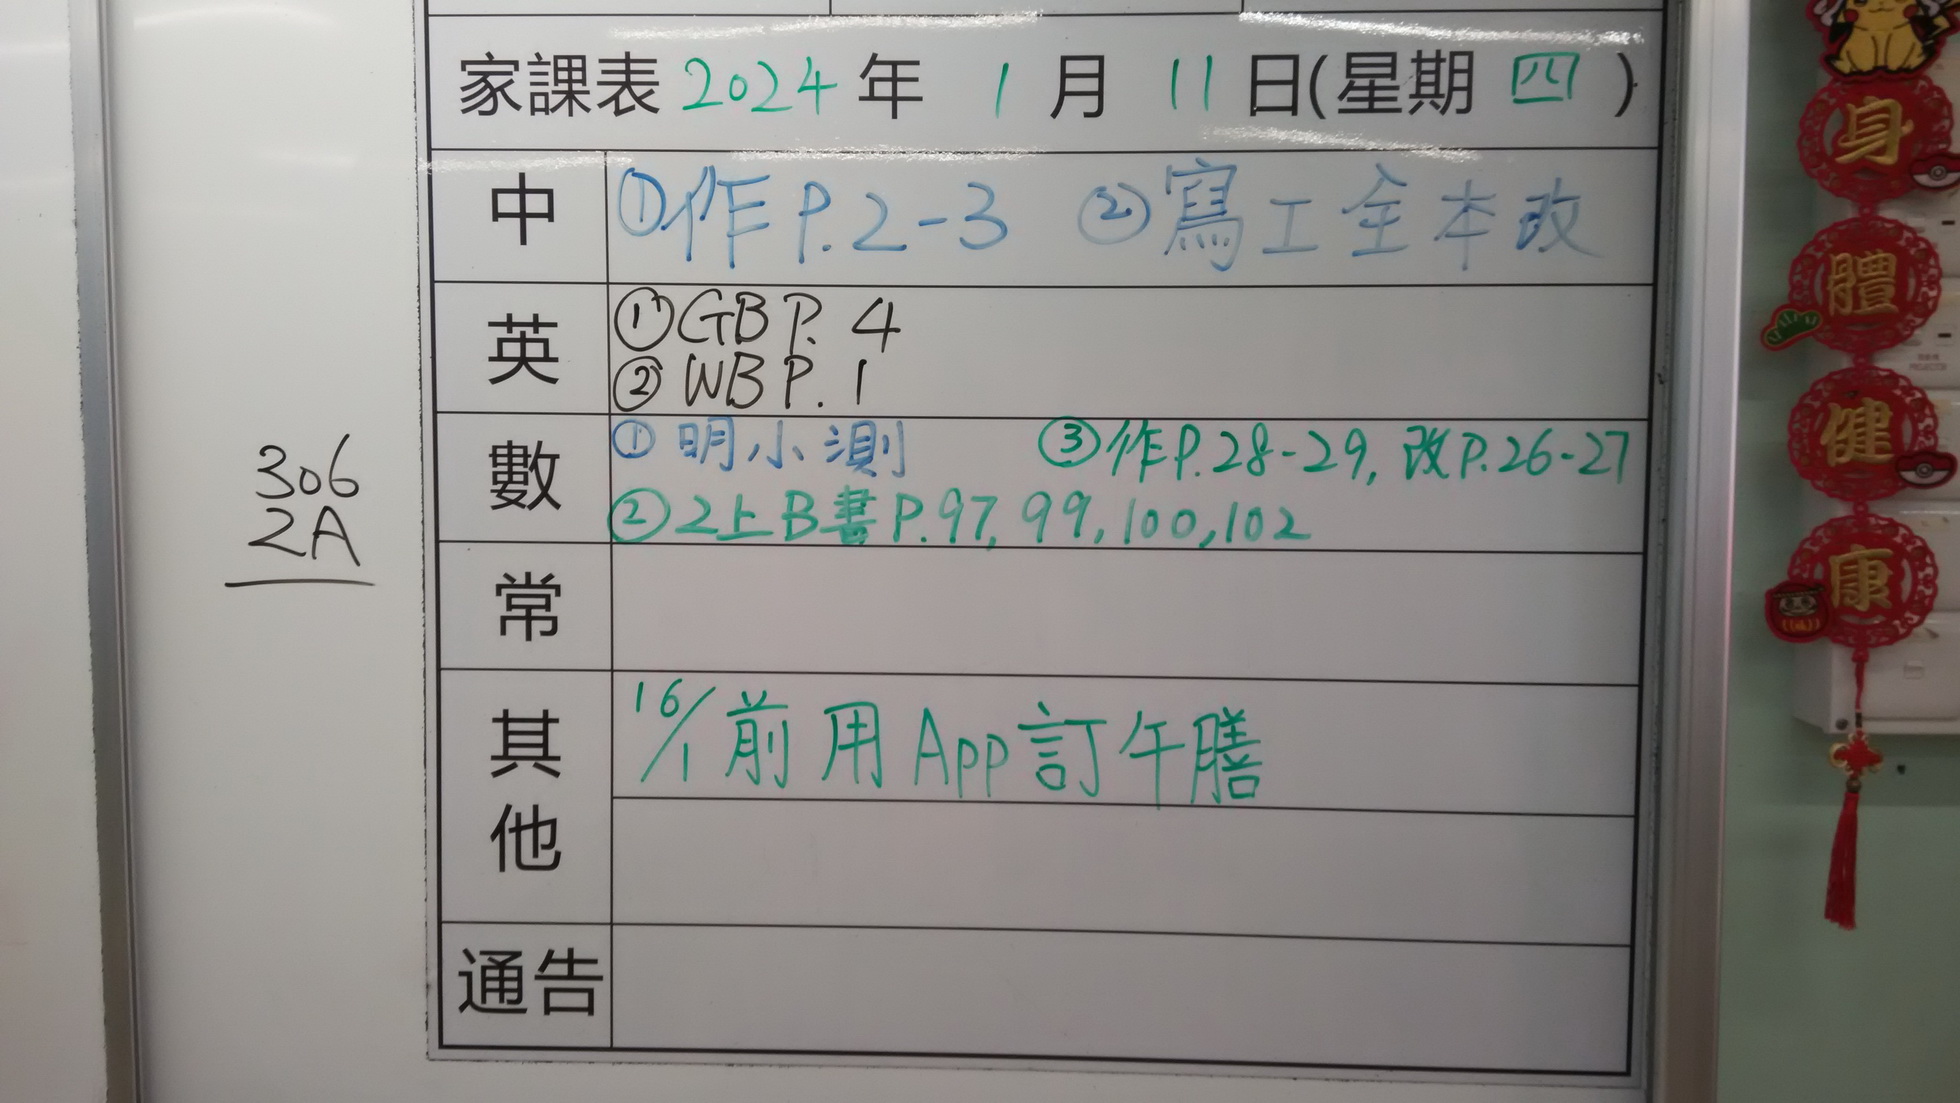 家課表 2024 年 1 月 11 日(星期 四 )
中 ①作P.2-3 ②寫工全本改
英 ①GB P.4
②WB P.1
數 ①明小測 ③作P.28-29, 改P.26-27
②2上B書P.97, 99, 100, 102
常
其他 16/1前用App訂午膳
通告
306
2A
身
體
健
康